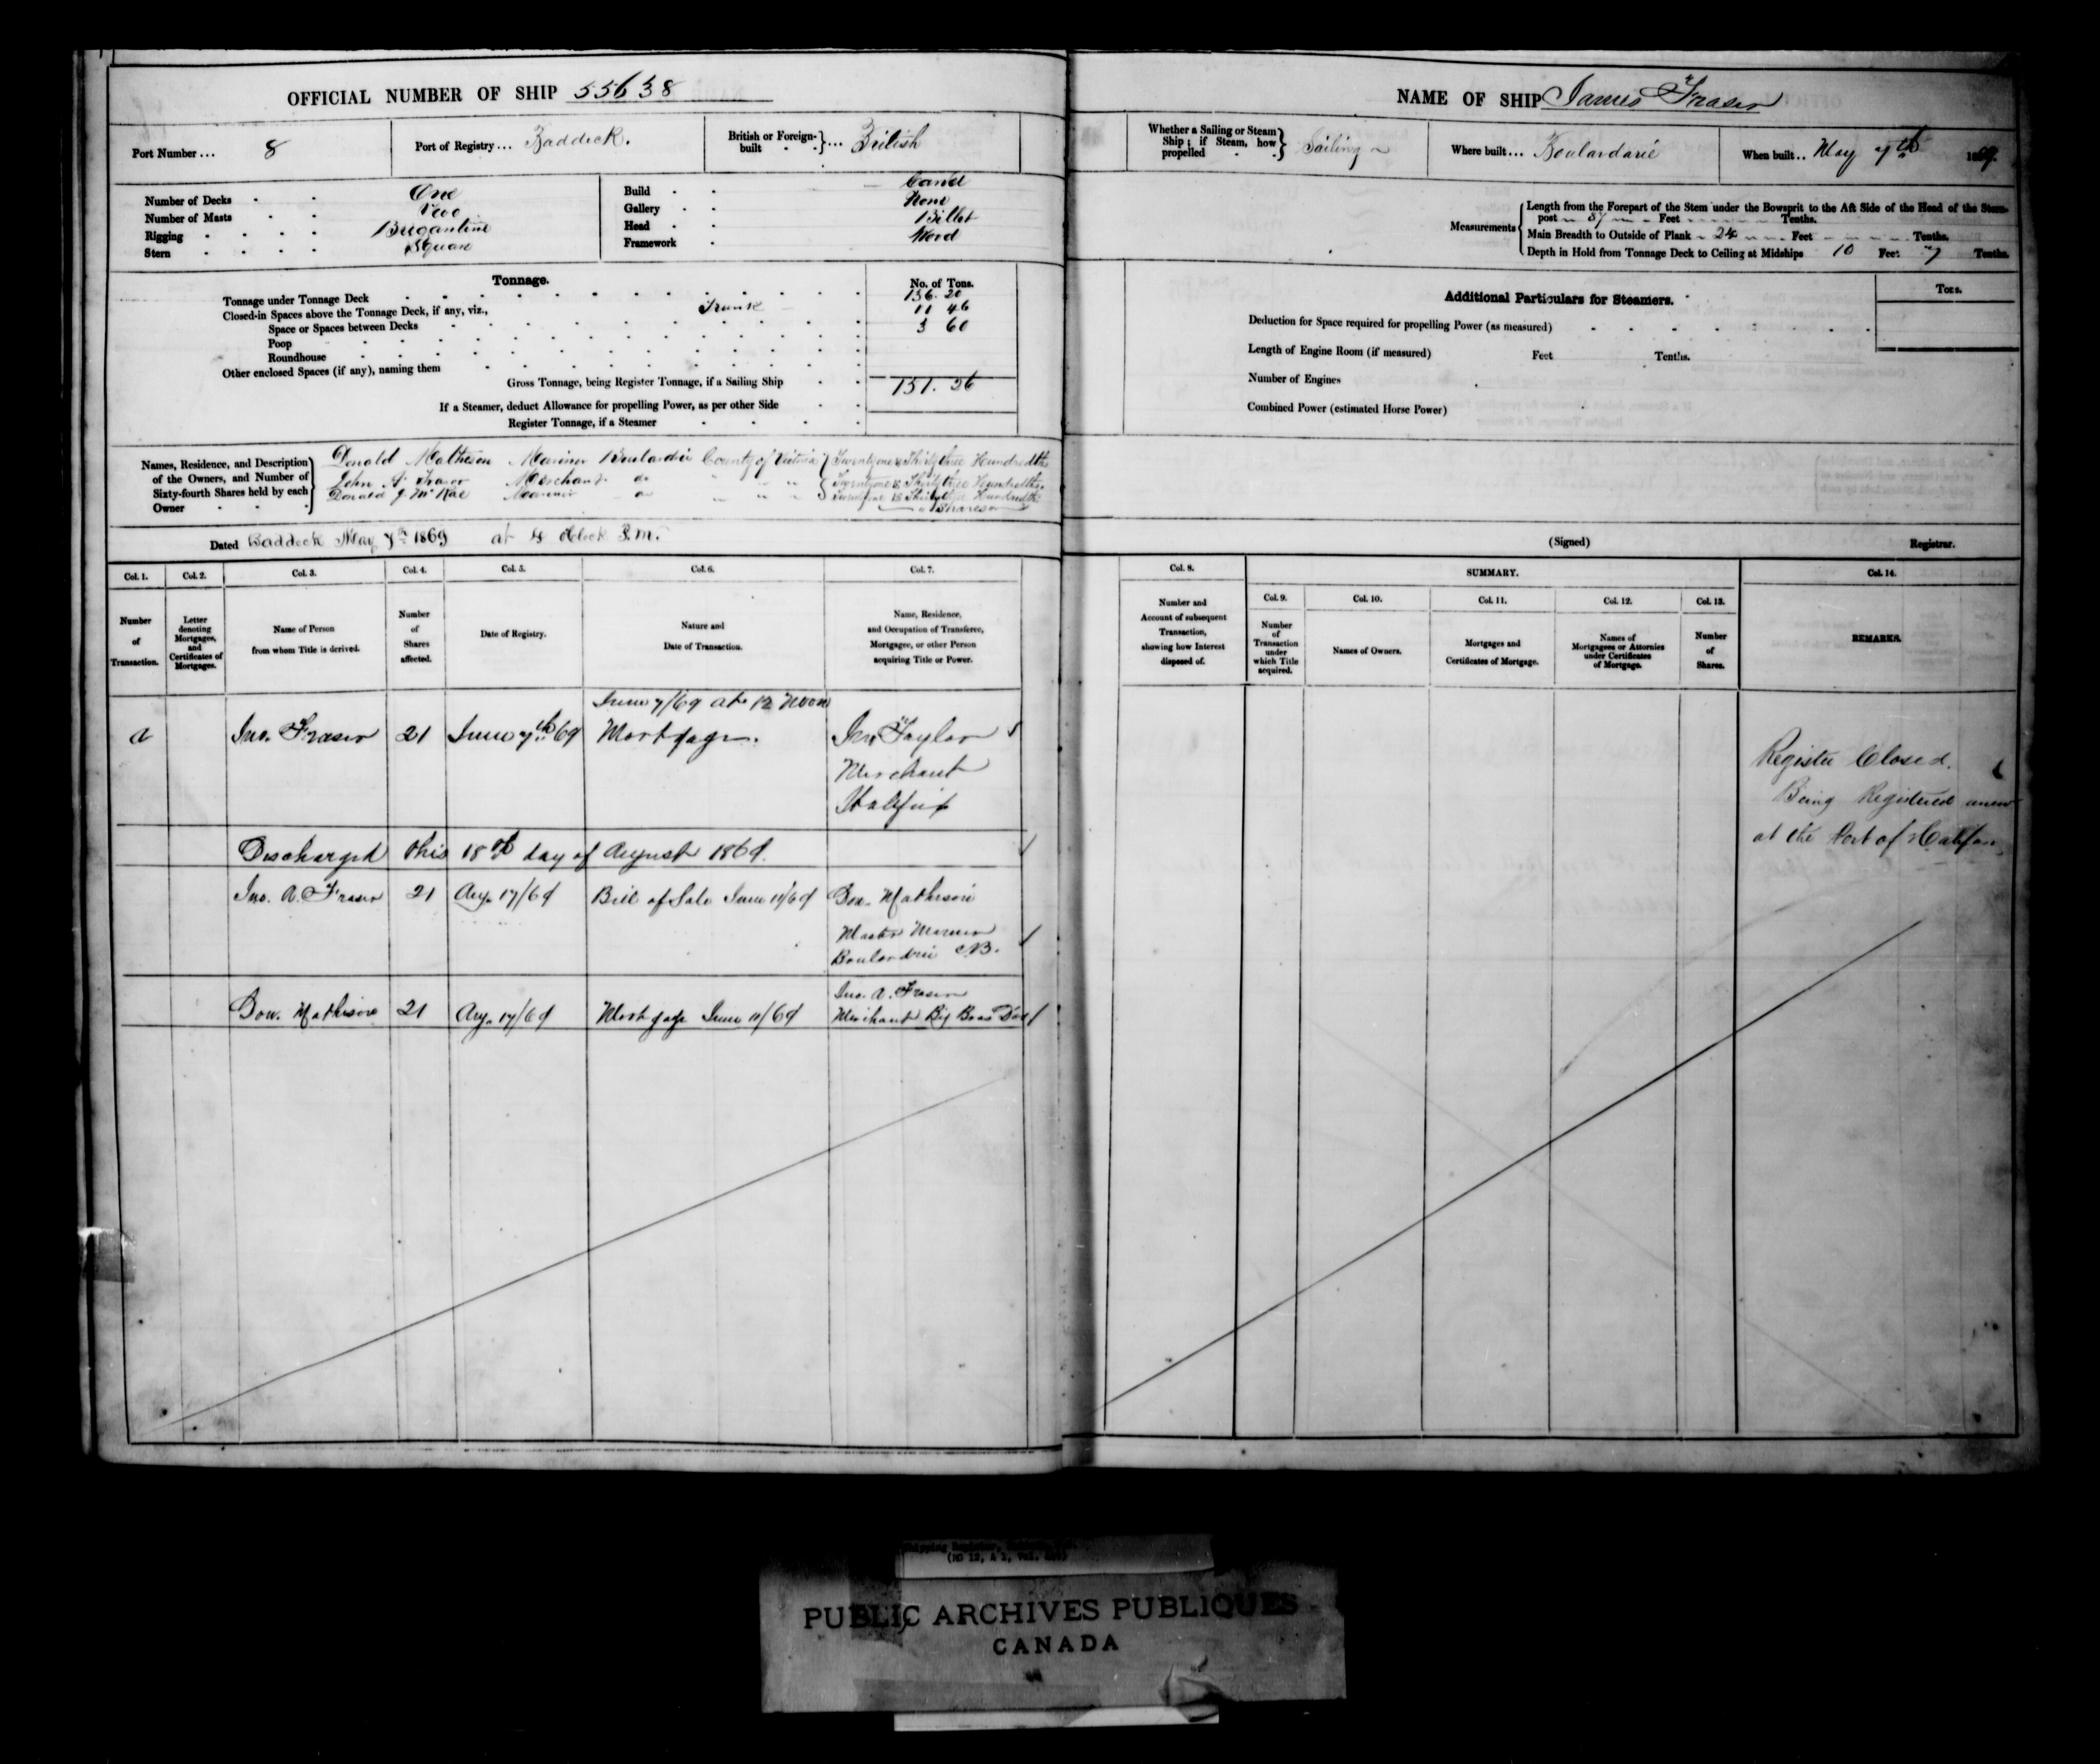 OFFICIAL NUMBER OF SHIP 55638
Port Number... 8
Port of Registry... Baddeck.
British or Foreign-built }... British
Number of Decks One
Number of Masts Two
Rigging Brigantine
Stern Square
Build Carvel
Gallery None
Head Billet
Framework Wood
Tonnage.
No. of Tons.
Tonnage under Tonnage Deck 136.20
Closed-in Spaces above the Tonnage Deck, if any, viz., Trunk 11 46
Space or Spaces between Decks 3 60
Poop
Roundhouse
Other enclosed Spaces (if any), naming them
Gross Tonnage, being Register Tonnage, if a Sailing Ship 151.26
If a Steamer, deduct Allowance for propelling Power, as per other Side
Register Tonnage, if a Steamer
Names, Residence, and Description of the Owners, and Number of Sixty-fourth Shares held by each Owner
Donald Matheson Mariner Boulardrie County of Victoria } Twentyone & Thirtythree Hundredths
John A. Fraser Merchant do " " " } Twentyone & Thirtythree Hundredths
Donald J McRae Mariner do " " " } Twentyone & Thirtythree Hundredths
Shares
Dated Baddeck May 7th 1869 at 4 oClock P.M.
Col. 1. Col. 2. Col. 3. Col. 4. Col. 5. Col. 6. Col. 7.
Number of Transaction.
Letter denoting Mortgages, and Certificates of Mortgages.
Name of Person from whom Title is derived.
Number of Shares affected.
Date of Registry.
Nature and Date of Transaction.
Name, Residence, and Occupation of Transferee, Mortgagee, or other Person acquiring Title or Power.
June 7/69 at 12 Noon
a Jno. Fraser 21 June 7th 69 Mortgage. Jn Taylor
Merchant
Halifax
Discharged this 18th day of August 1869.
Jno. A. Fraser 21 Aug. 17/69 Bill of Sale June 11/69 Don. Mathison
Master Mariner
Boulardrie CB.
Don. Mathison 21 Aug. 17/69 Mortgage June 11/69 Jno. A. Fraser
Merchant Big Bras Dor
NAME OF SHIP James Fraser
Whether a Sailing or Steam Ship; if Steam, how propelled } Sailing
Where built... Boulardarie
When built.. May 7th 1869.
Measurements
Length from the Forepart of the Stem under the Bowsprit to the Aft Side of the Head of the Stern-
post 87 Feet Tenths.
Main Breadth to Outside of Plank 24 Feet Tenths.
Depth in Hold from Tonnage Deck to Ceiling at Midships 10 Feet 7 Tenths.
Additional Particulars for Steamers.
Tons.
Deduction for Space required for propelling Power (as measured)
Length of Engine Room (if measured) Feet Tenths.
Number of Engines
Combined Power (estimated Horse Power)
(Signed) Registrar.
Col. 8. SUMMARY. Col. 14.
Col. 9. Col. 10. Col. 11. Col. 12. Col. 13.
Number and Account of subsequent Transaction, showing how Interest disposed of.
Number of Transaction under which Title acquired.
Names of Owners.
Mortgages and Certificates of Mortgage.
Names of Mortgagees or Attornies under Certificates of Mortgage.
Number of Shares.
REMARKS.
Register Closed.
Being Registered anew
at the Port of Halifax.
(MG 12, A 1, Vol.
PUBLIC ARCHIVES PUBLIQUES
CANADA